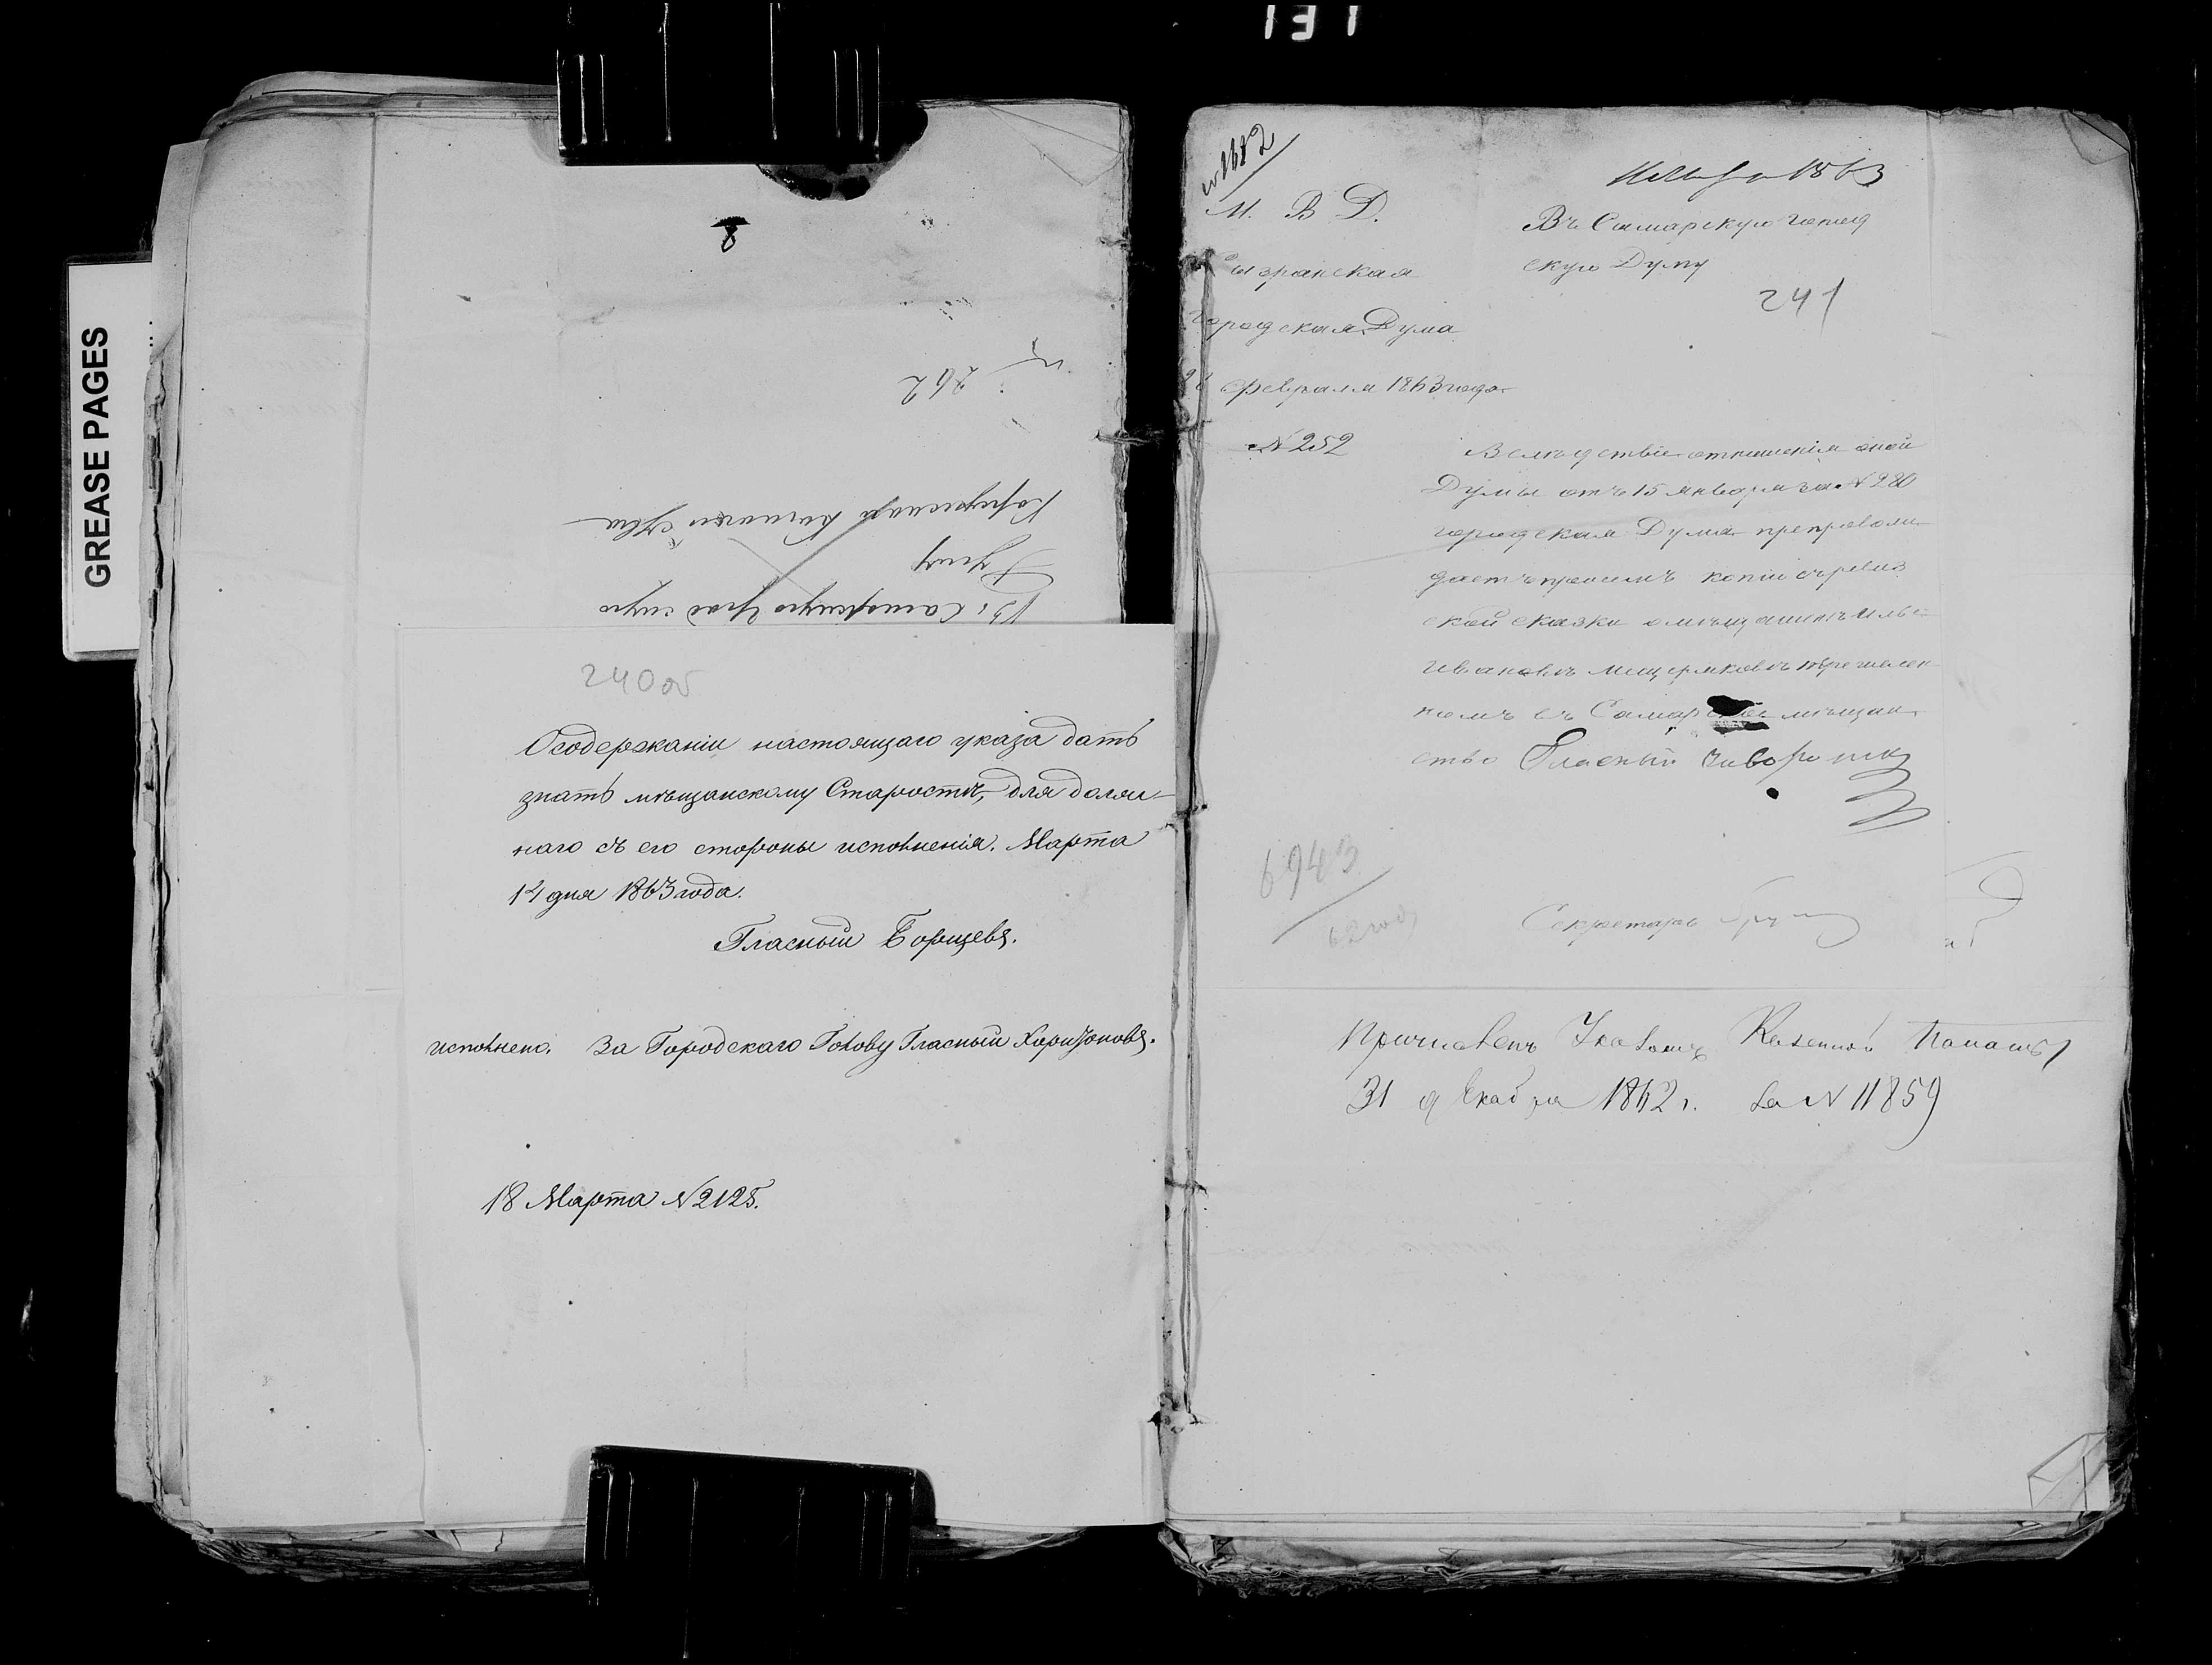 131
GREASE PAGES
8
№ 262
Въ Самарскую Градскую
Думу
240об
О содержаніи настоящаго указа дать
знать мѣщанскому Старостѣ, для долж-
наго съ его стороны исполненія. Марта
14 дня 1863 года.
Гласный Борщевъ.
исполнено. За Городскаго Голову Гласный Хоризоновъ.
18 Марта № 2125.
1863
М. В. Д.
Сызранская
городская Дума
февраля 1863 года
№ 252
Въ Самарскую город
скую Думу
241
Вслѣдствіе отношенія оной
Думы отъ 15 января за № 280
городская Дума препровож
даетъ при семъ копію съ ревиз
ской сказки о мѣщанинѣ Ильѣ
Ивановѣ Мещеряковѣ
номъ въ Самарское мѣщан
ство Гласный
6943
62 год
Секретарь
Причисленъ Указомъ Казенной Палаты
31 декабря 1862 г. за № 11859